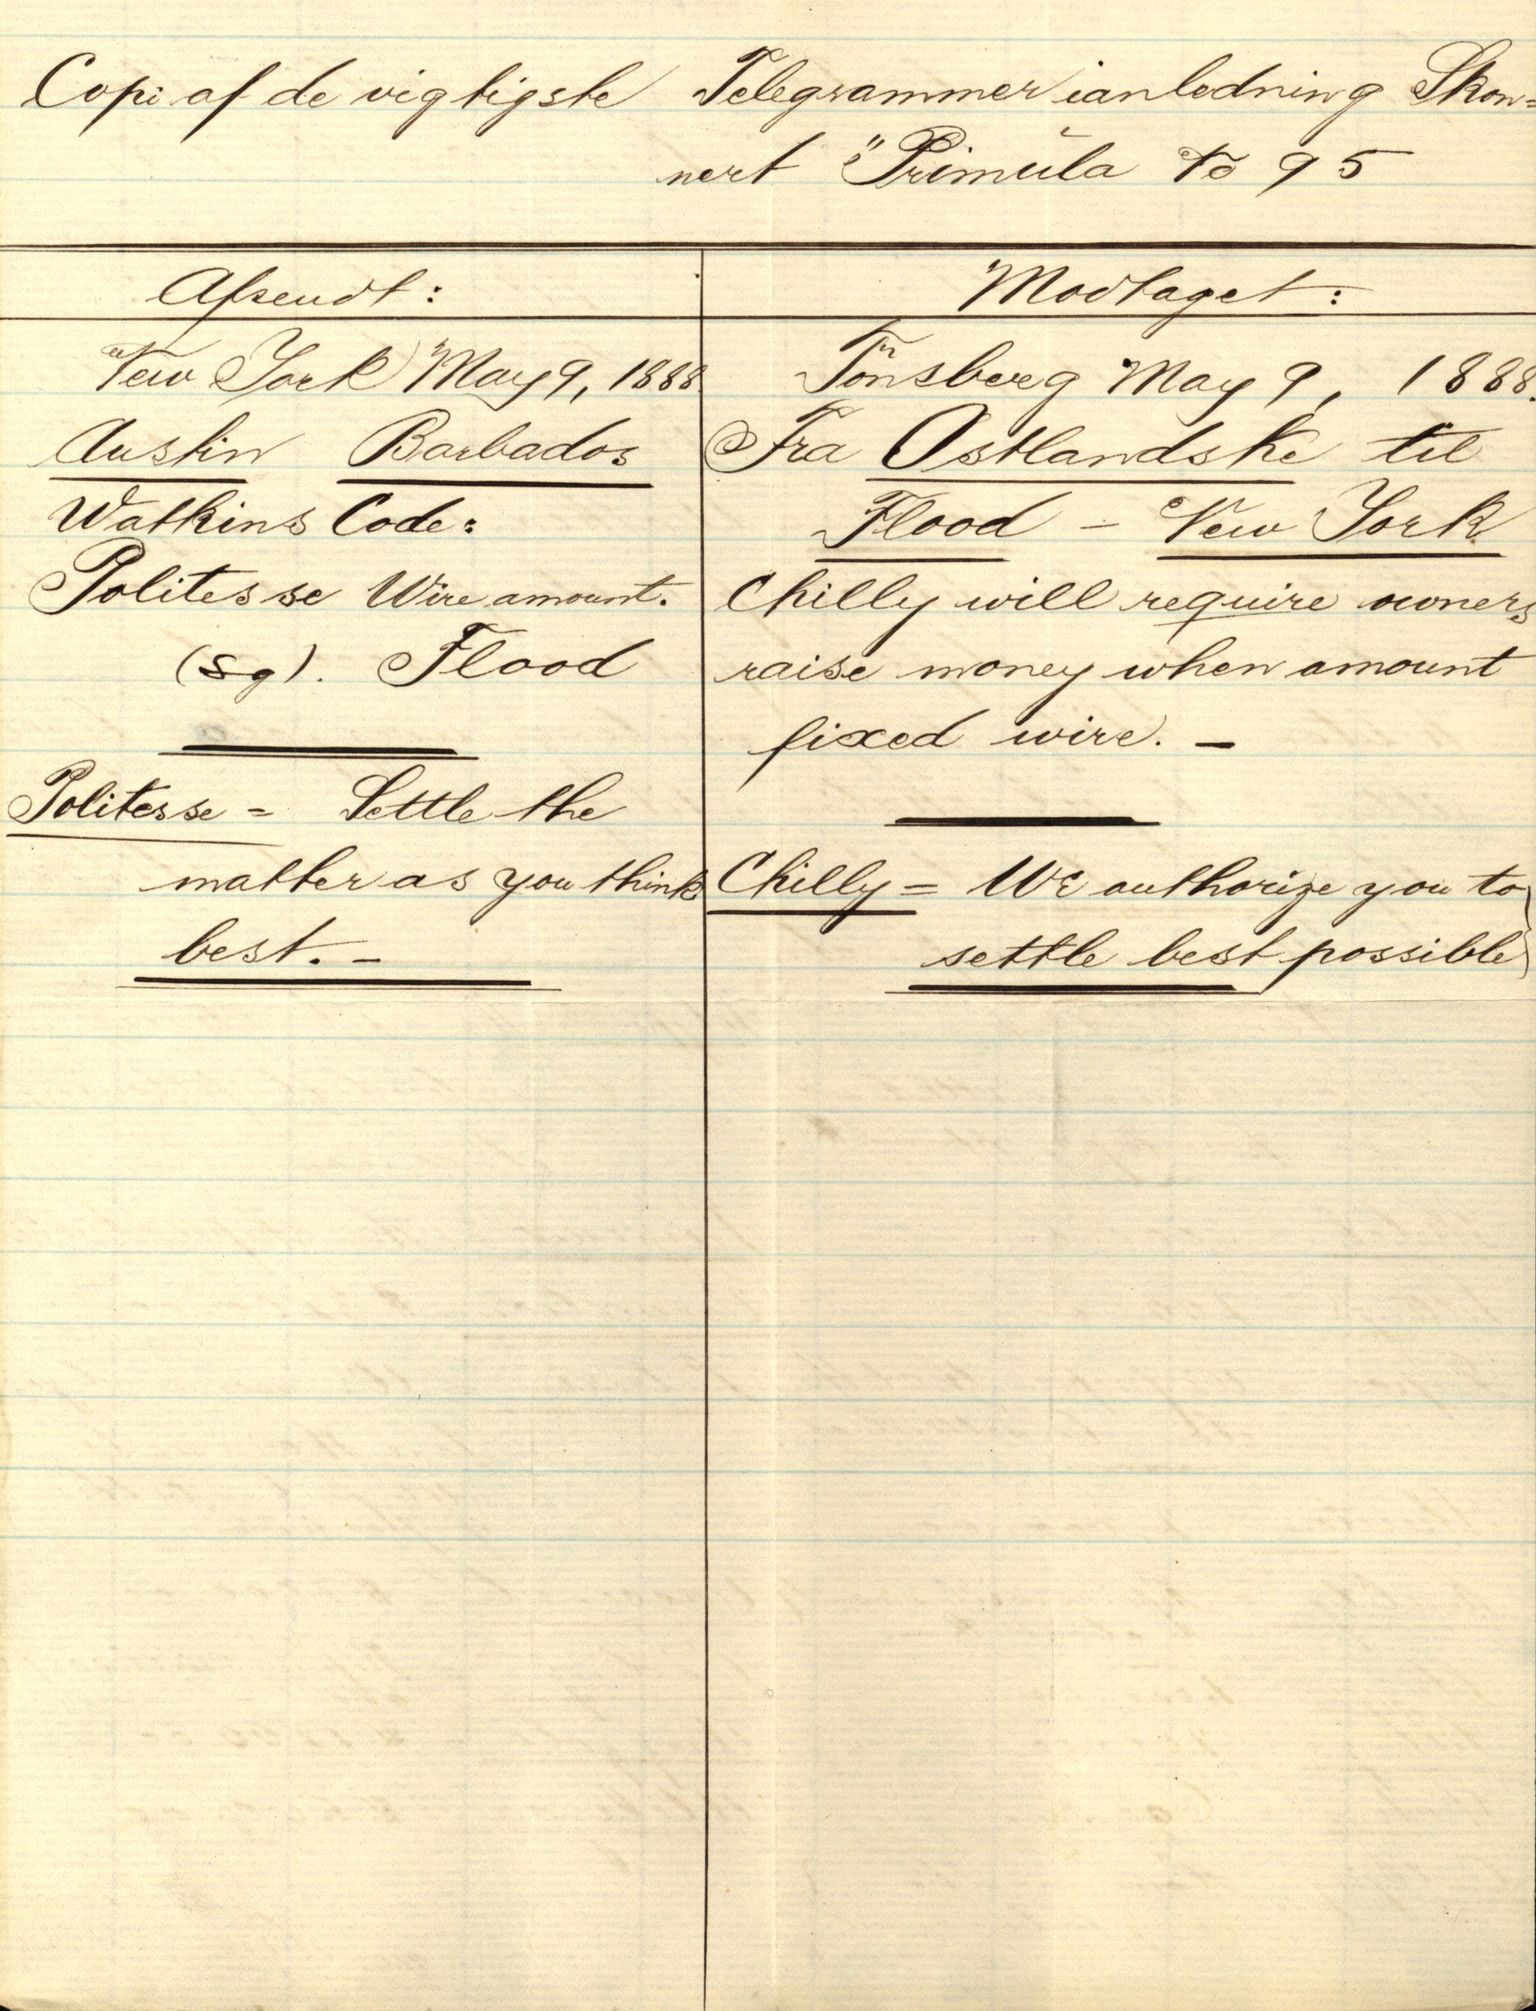 Copi af de vigtigste Telegrammer ianledning Skon=
nert "Primula To 95
Afsendt:
New York May 9, 1888
Austin Barbados
Watkins Code:
Politesse Wire amount.
(sg). Flood
Politesse = Settle the
matter as you think
best. -
Modtaget:
Tönsberg May 9, 1888.
Fra Ostlandske til
Flood - New York
Chilly will require owners
raise money when amount
fixed wire. -
Chilly = We authorize you to
settle best possible